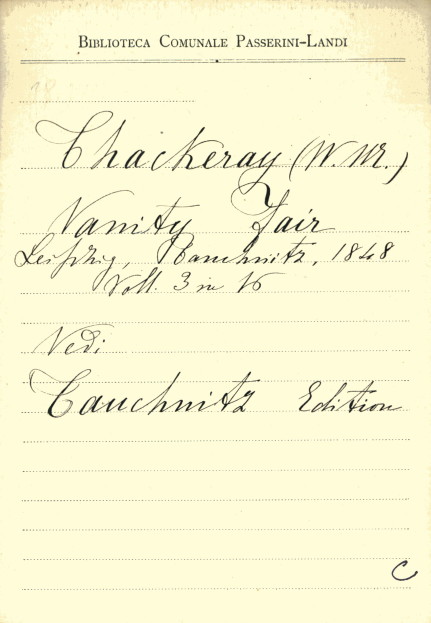 BIBLIOTECA COMUNALE PASSERINI-LANDI
Thackeray (W. M.)
Vanity Fair
Leipzig, Tauchnitz, 1848
Voll. 3 in 16
Vedi
Tauchnitz Edition
C